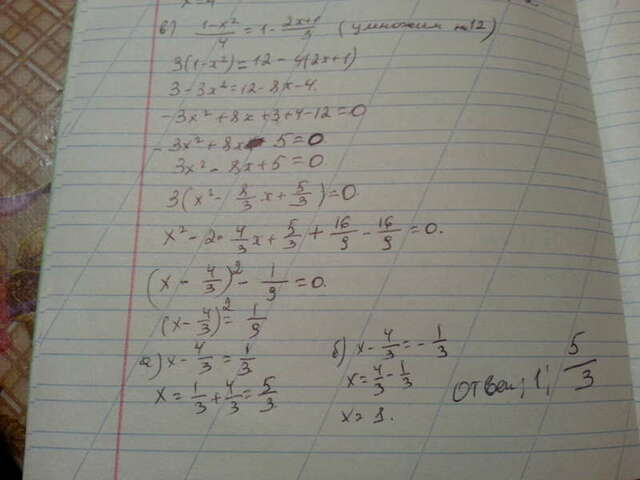 в) (1-x²)/4 = 1 - (2x+1)/3 (умножим на 12)
3(1-x²) = 12 - 4(2x+1)
3 - 3x² = 12 - 8x - 4.
-3x² + 8x + 3 + 4 - 12 = 0
-3x² + 8x - 5 = 0.
3x² - 8x + 5 = 0
3(x² - 8/3 x + 5/3) = 0.
x² - 2· 4/3 x + 5/3 + 16/9 - 16/9 = 0.
(x - 4/3)² - 1/9 = 0.
(x - 4/3)² = 1/9
а) x - 4/3 = 1/3
x = 1/3 + 4/3 = 5/3
б) x - 4/3 = - 1/3
x = 4/3 - 1/3
x = 1.
Ответ: 1; 5/3